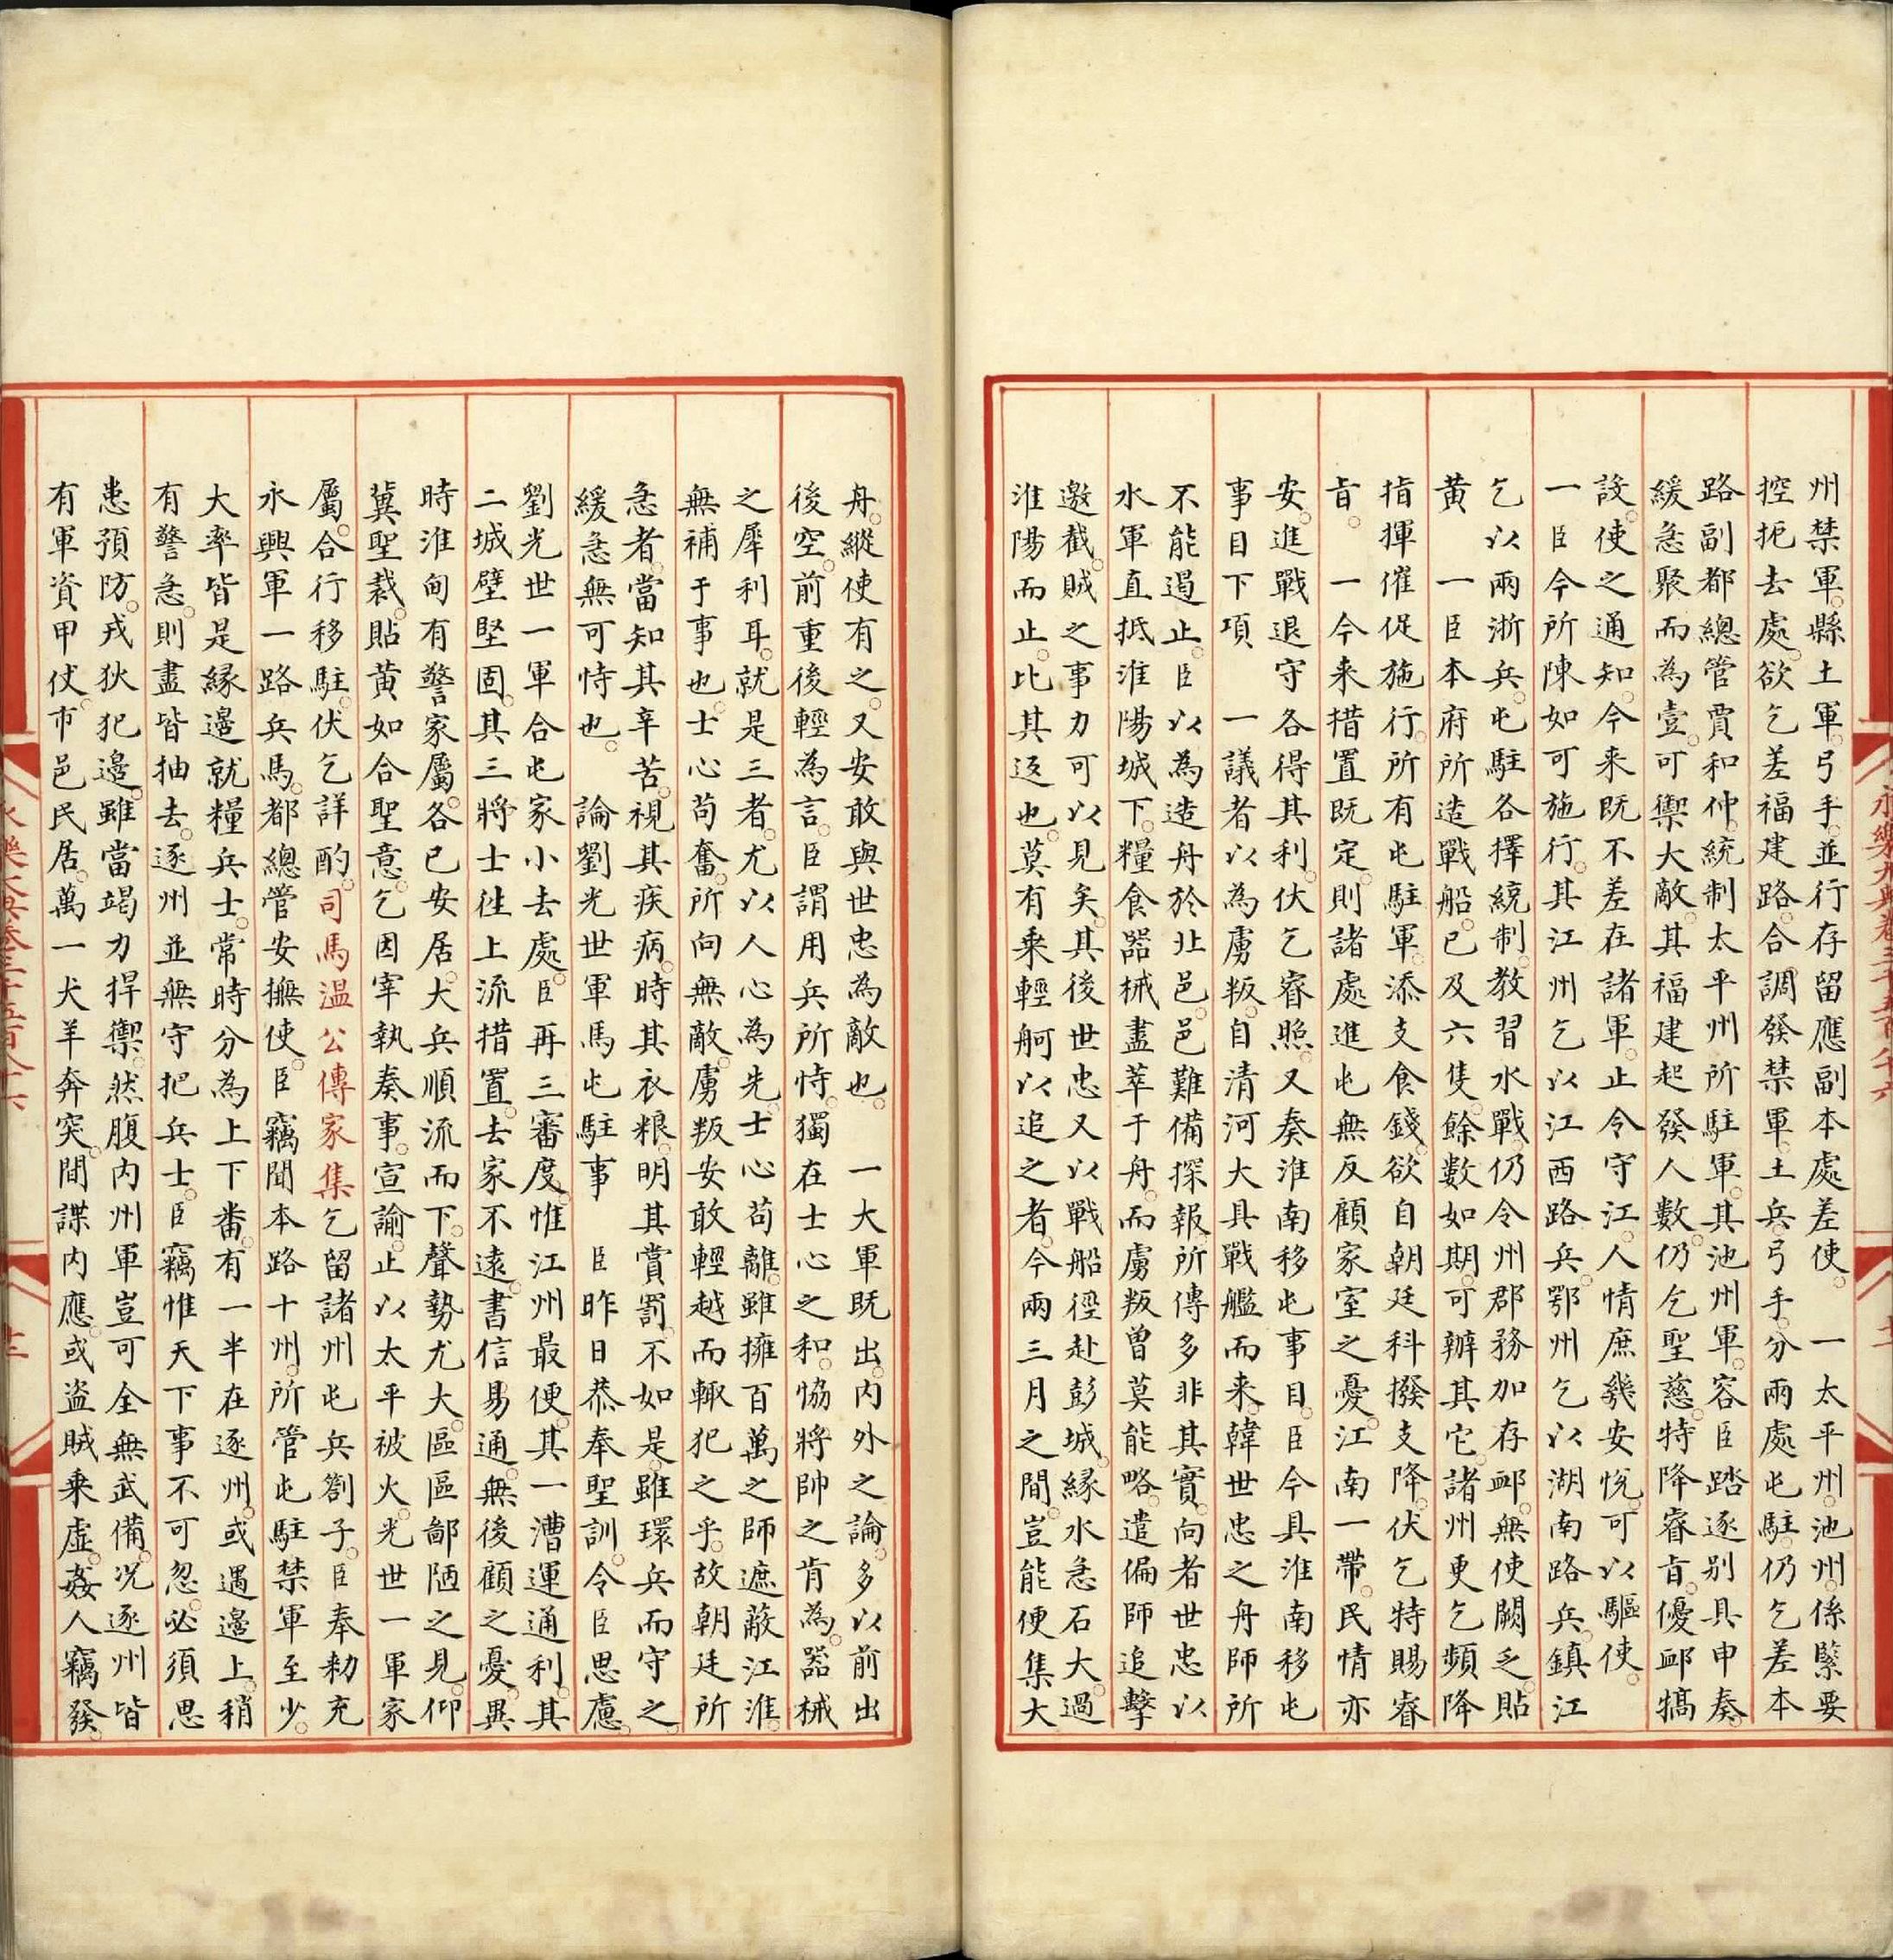 州禁軍縣土軍弓手並行存留應副本處差使　一太平州池州係緊要
控扼去處欲乞差福建路合調發禁軍土兵弓手分兩處屯駐仍乞差本
路副都總管賈和仲統制太平州所駐軍其池州軍容臣踏逐别具申奏
緩急聚而為壹可禦大敵其福建起發人數仍乞聖慈特降睿旨優卹犒
設使之通知今来既不差在諸軍止令守江人情庶幾安悅可以驅使
一臣今所陳如可施行其江州乞以江西路兵鄂州乞以湖南路兵鎮江
乞以兩浙兵屯駐各擇統制教習水戰仍令州郡務加存卹無使闕乏貼
黄　一臣本府所造戰船已及六隻餘數如期可辦其它諸州更乞頻降
指揮催促施行所有屯駐軍添支食錢欲自朝廷科撥支降伏乞特賜睿
旨　一今来措置既定則諸處進屯無反顧家室之憂江南一帶民情亦
安進戰退守各得其利伏乞睿照又奏淮南移屯事目臣今具淮南移屯
事目下項　一議者以為虜叛自清河大具戰艦而来韓世忠之舟師所
不能遏止臣以為造舟於北邑邑難備探報所傳多非其實向者世忠以
水軍直抵淮陽城下糧食器械盡萃于舟而虜叛曾莫能略遣偏師追擊
邀截賊之事力可以見矣其後世忠又以戰船徑赴彭城緣水急石大過
淮陽而止比其返也莫有乘輕舸以追之者今兩三月之間豈能便集大
舟縱使有之又安敢與世忠為敵也　一大軍既出内外之論多以前出
後空前重後輕為言臣謂用兵所恃獨在士心之和恊將帥之肯為器械
之犀利耳就是三者尤以人心為先士心苟離雖擁百萬之師遮蔽江淮
無補于事也士心苟奮所向無敵虜叛安敢輕越而輙犯之乎故朝廷所
急者當知其辛苦視其疾病時其衣粮明其賞罰不如是雖環兵而守之
緩急無可恃也　論劉光世軍馬屯駐事　臣昨日恭奉聖訓令臣思慮
劉光世一軍合屯家小去處臣再三審度惟江州最便其一漕運通利其
二城壁堅固其三將士徃上流措置去家不遠書信易通無後顧之憂異
時淮甸有警家屬各已安居大兵順流而下聲勢尤大區區鄙陋之見仰
冀聖裁貼黄如合聖意乞因宰執奏事宣諭止以太平被火光世一軍家
屬合行移駐伏乞詳酌司馬温公傳家集乞留諸州屯兵劄子臣奉勑充
永興軍一路兵馬都總管安撫使臣竊聞本路十州所管屯駐禁軍至少
大率皆是緣邊就糧兵士常時分為上下畨有一半在逐州或遇邊上稍
有警急則盡皆抽去逐州並無守把兵士臣竊惟天下事不可忽必須思
患預防戎狄犯邊雖當竭力捍禦然腹内州軍豈可全無武備况逐州皆
有軍資甲仗市邑民居萬一犬羊奔突間諜内應或盗賊乘虛姦人竊發